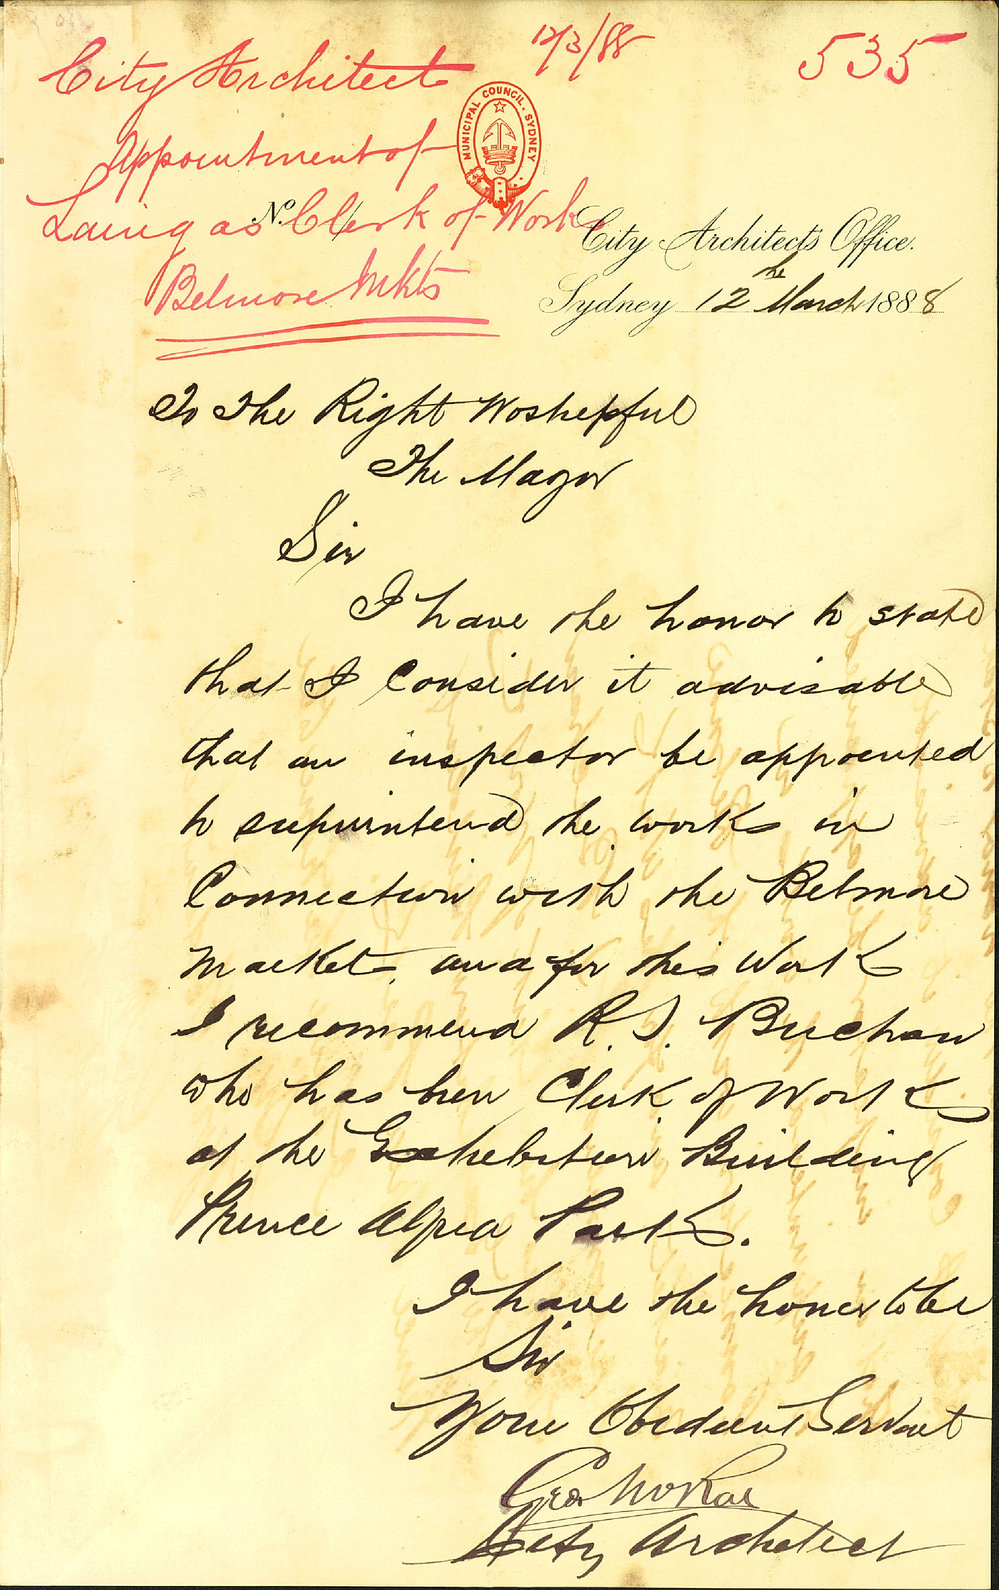 City Architect
12/3/88
535
Appointment of
Laing as Clerk of Work
Belmore Mkts
MUNICIPAL COUNCIL. SYDNEY
No.
City Architect's Office.
Sydney 12th March 1888
To The Right Woshepful
The Mayor
Sir
I have the honor to state
that I Consider it advisable
that an inspector be appointed
to superintend the works in
Connection with the Belmore
Market, and for this Work
I recommend R. S. Buchan
who has been Clerk of Works
at the Exhebition Building
Prince Alfred Park.
I have the honor to be
Sir
Your Obedient Servant
Geo McRae
City Architect